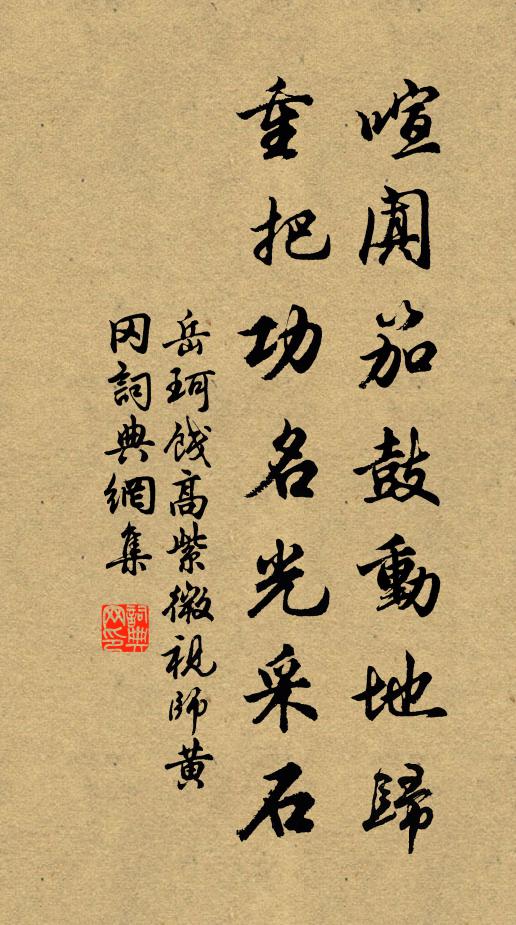 喧闐笳鼓動地歸
重把功名光采石
岳珂餞高紫微視師黃
冈詞典網集
詞典網印